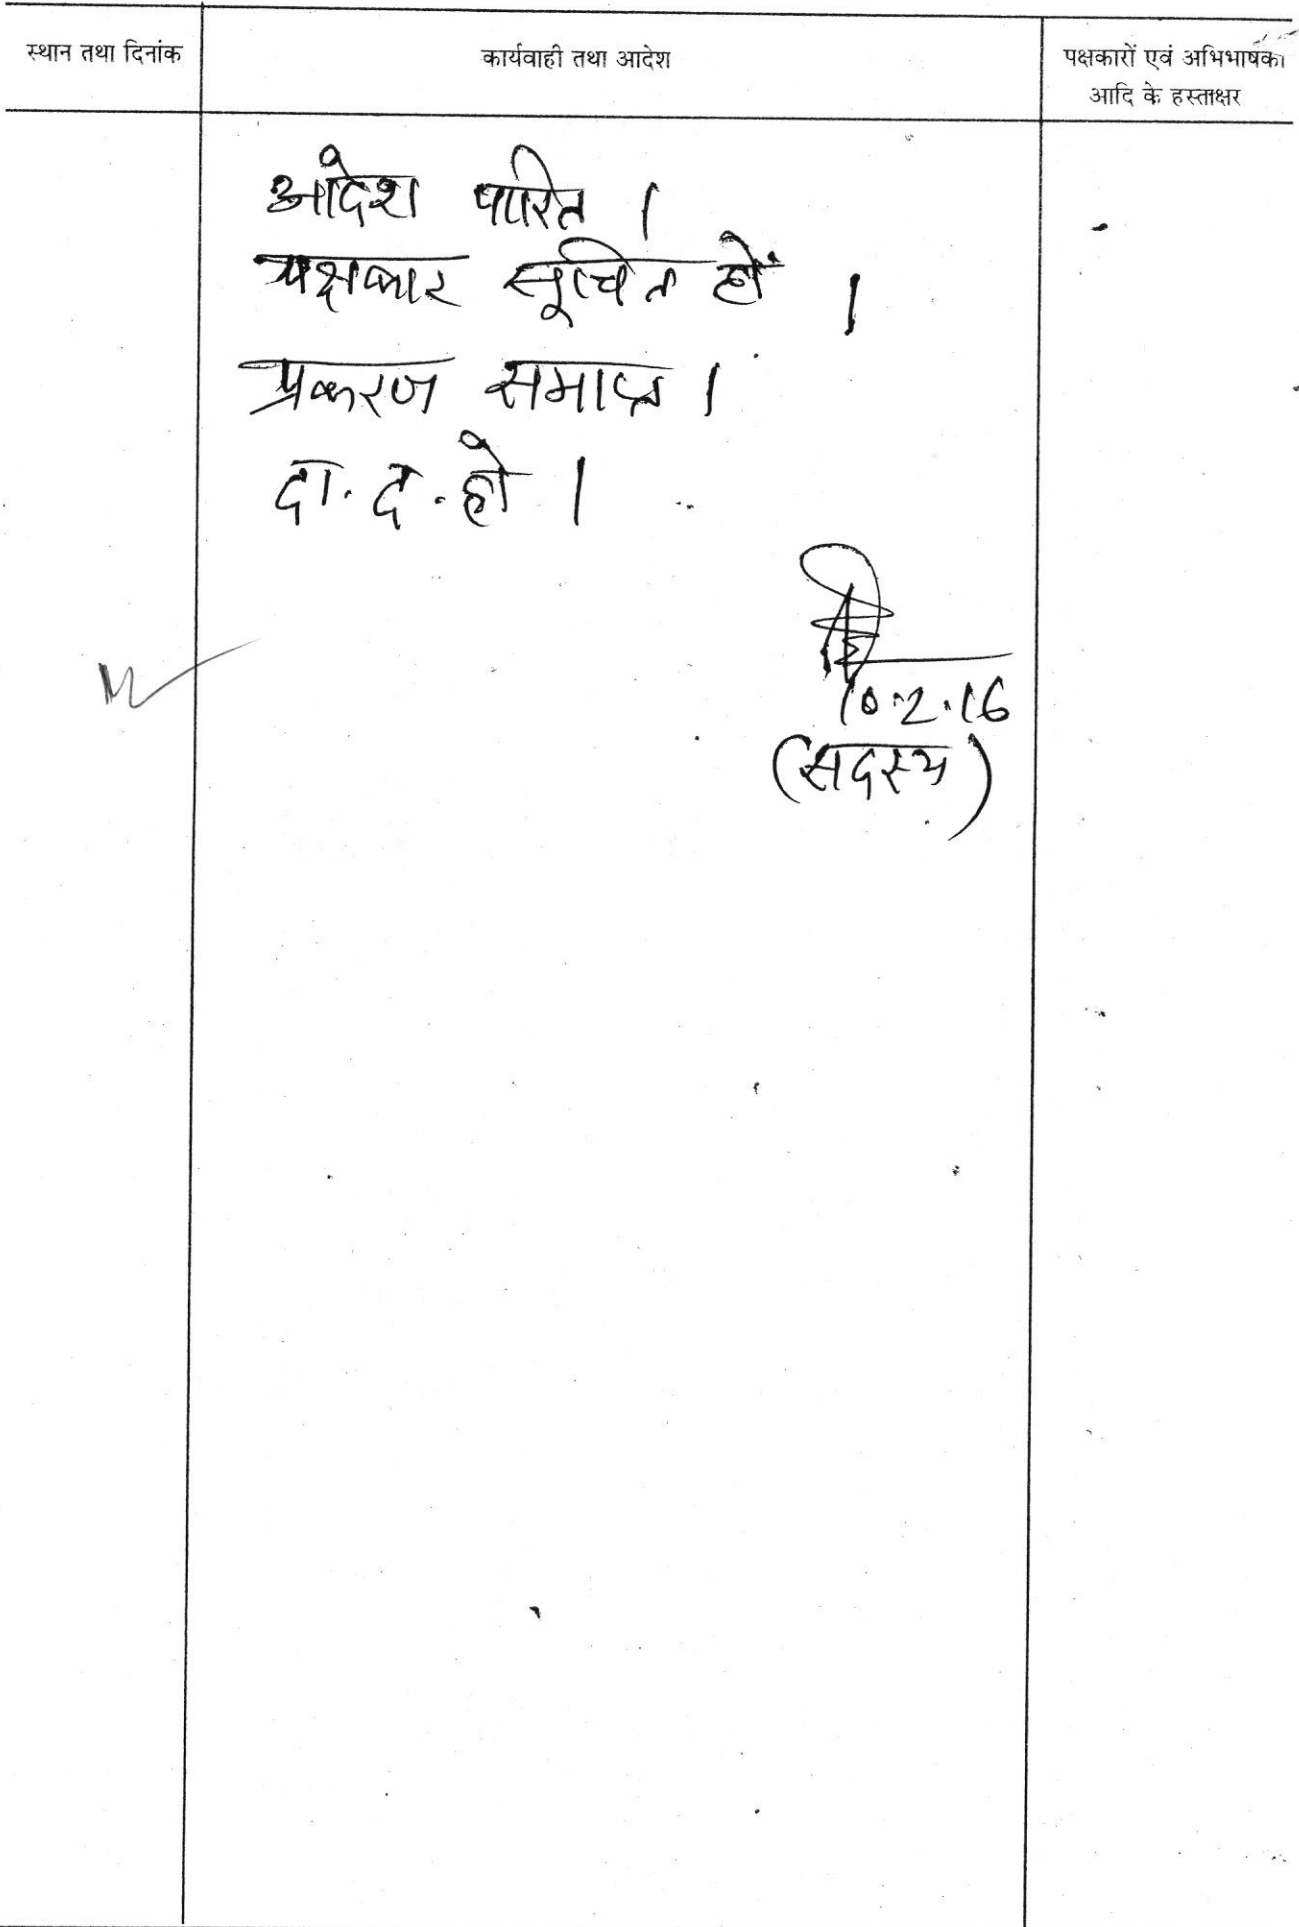 स्थान तथा दिनांक
कार्यवाही तथा आदेश
पक्षकारों एवं अभिभाषकों
आदि के हस्ताक्षर
आदेश पारित ।
पक्षकार सूचित हों ।
प्रकरण समाप्त ।
दा. द. हो ।
10.2.16
(सदस्य)